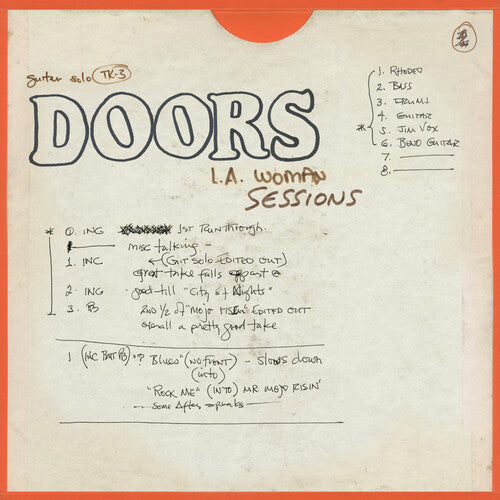 guitar solo TK-3
DOORS
L.A. WOMAN
SESSIONS
1. RHODES
2. BASS
3. DRUMS
4. GUITAR
* 5. JIM VOX
6. BENO GUITAR
7.
8.
* 0. INC 1ST Run through.
misc talking -
1. INC ← (GIT SOLO EDITED OUT)
great take falls apart @
2. INC good till "City of Nights"
3. PB 2ND 1/2 of "MOJO RISIN" EDITED OUT
overall a pretty good take
1 (INC BUT PB) "? Blues" (NO FRONT) - slows down
(into)
"ROCK ME" (INTO) MR MOJO RISIN'